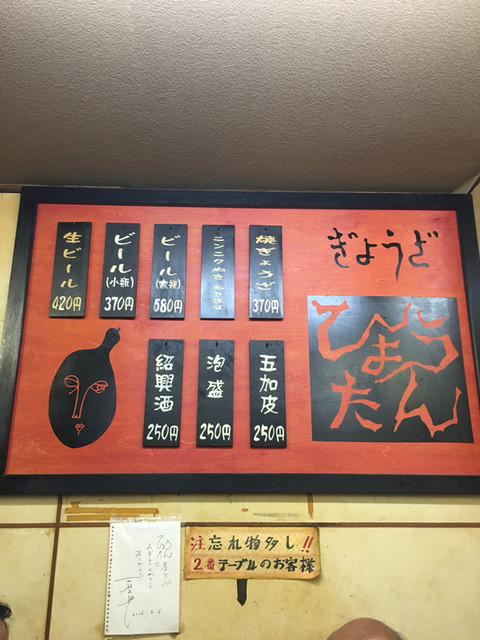 ぎょうざ
ひょうたん
焼ぎょうざ 370円
ニンニクぬきあります
ビール(大瓶) 580円
ビール(小瓶) 370円
生ビール 420円
五加皮 250円
泡盛 250円
紹興酒 250円
注忘れ物多し!!
2番テーブルのお客様
ひょうたん